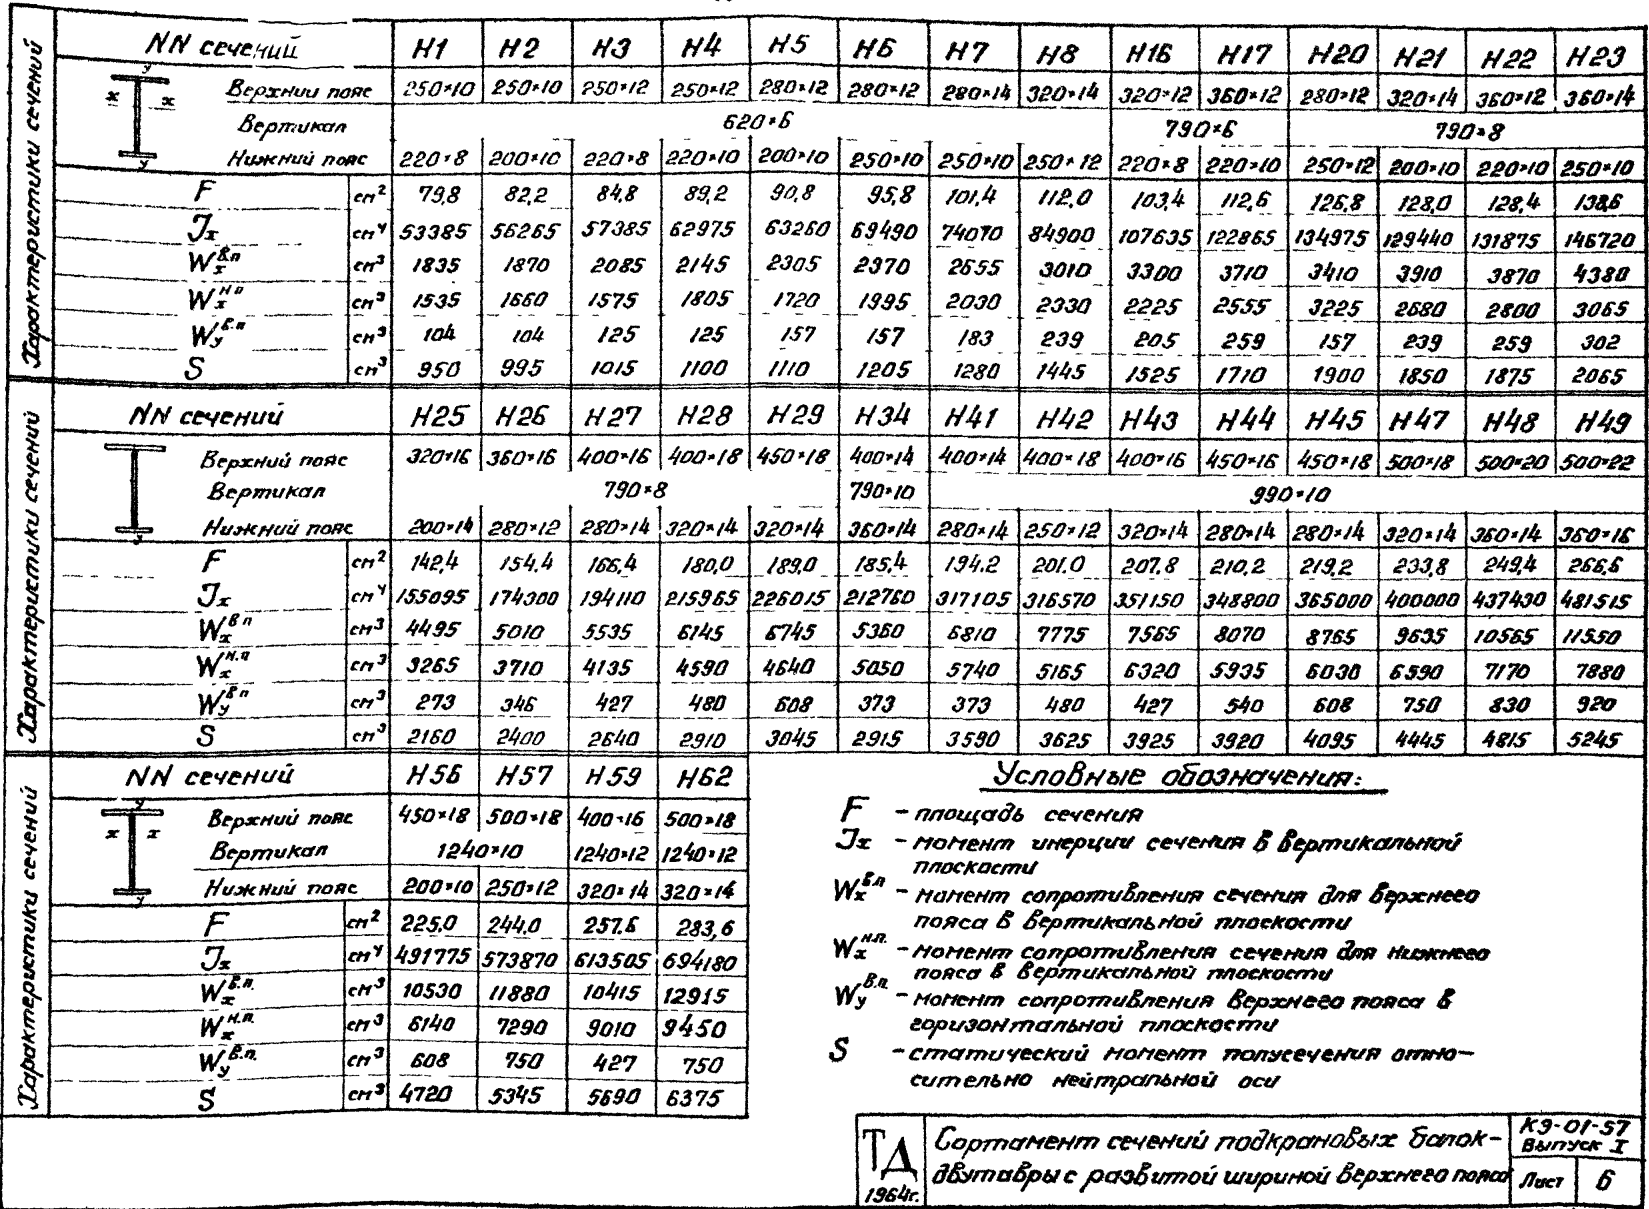 NN сечений Н1 Н2 Н3 Н4 Н5 Н6 Н7 Н8 Н16 Н17 Н20 Н21 Н22 Н23
Верхний пояс 250×10 250×10 250×12 250×12 280×12 280×12 280×14 320×14 320×12 360×12 280×12 320×14 360×12 360×14
Вертикал 620×6 790×6 790×8
Нижний пояс 220×8 200×10 220×8 220×10 200×10 250×10 250×10 250×12 220×8 220×10 250×12 200×10 220×10 250×10
F см² 79,8 82,2 84,8 89,2 90,8 95,8 101,4 112,0 103,4 112,6 126,8 128,0 128,4 138,6
Jx см⁴ 53385 56265 57385 62975 63260 69490 74070 84900 107635 122865 134975 129440 131875 146720
Wx в.п см³ 1835 1870 2085 2145 2305 2370 2655 3010 3300 3710 3410 3910 3870 4380
Wx н.п см³ 1535 1660 1575 1805 1720 1995 2030 2330 2225 2555 3225 2680 2800 3065
Wy в.п см³ 104 104 125 125 157 157 183 239 205 259 157 239 259 302
S см³ 950 995 1015 1100 1110 1205 1280 1445 1525 1710 1900 1850 1875 2065
Характеристики сечений
x x
y
y
NN сечений Н25 Н26 Н27 Н28 Н29 Н34 Н41 Н42 Н43 Н44 Н45 Н47 Н48 Н49
Верхний пояс 320×16 360×16 400×16 400×18 450×18 400×14 400×14 400×18 400×16 450×16 450×18 500×18 500×20 500×22
Вертикал 790×8 790×10 990×10
Нижний пояс 200×14 280×12 280×14 320×14 320×14 360×14 280×14 250×12 320×14 280×14 280×14 320×14 360×14 360×16
F см² 142,4 154,4 166,4 180,0 189,0 185,4 194,2 201,0 207,8 210,2 219,2 233,8 249,4 266,6
Jx см⁴ 155095 174300 194110 215965 226015 212760 317105 316570 351150 348800 365000 400000 437430 481515
Wx в.п см³ 4495 5010 5535 6145 6745 5360 6810 7775 7565 8070 8765 9635 10565 11550
Wx н.п см³ 3265 3710 4135 4590 4640 5050 5740 5165 6320 5935 6030 6590 7170 7880
Wy в.п см³ 273 346 427 480 608 373 373 480 427 540 608 750 830 920
S см³ 2160 2400 2640 2910 3045 2915 3590 3625 3925 3920 4095 4445 4815 5245
Характеристики сечений
y
NN сечений Н56 Н57 Н59 Н62
Верхний пояс 450×18 500×18 400×16 500×18
Вертикал 1240×10 1240×12 1240×12
Нижний пояс 200×10 250×12 320×14 320×14
F см² 225,0 244,0 257,6 283,6
Jx см⁴ 491775 573870 613505 694180
Wx в.п. см³ 10530 11880 10415 12915
Wx н.п. см³ 6140 7290 9010 9450
Wy в.п. см³ 608 750 427 750
S см³ 4720 5345 5690 6375
Характеристики сечений
y
x x
y
Условные обозначения:
F – площадь сечения
Jx – момент инерции сечения в вертикальной
плоскости
Wx в.п – момент сопротивления сечения для верхнего
пояса в вертикальной плоскости
Wx н.п. – момент сопротивления сечения для нижнего
пояса в вертикальной плоскости
Wy в.п. – момент сопротивления верхнего пояса в
горизонтальной плоскости
S – статический момент полусечения отно–
сительно нейтральной оси
ТД
1964г.
Сортамент сечений подкрановых балок–
двутавры с развитой шириной верхнего пояса
КЭ-01-57
Выпуск I
Лист 6